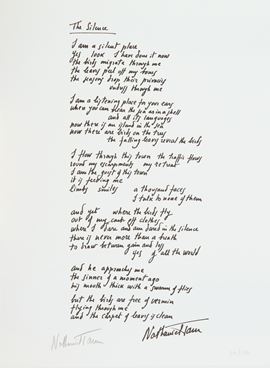 The Silence
I am a silent place
yes look I have done it now
the birds migrate through me
the leaves peel off my bones
the seasons drop their
through me
I am a listening place for your ears
when you can hear the sea as in a shell
and all its languages
now there is an island in the sea
now there are birds on the tree
the falling leaves reveal the birds
I flow through this town the traffic flows
round my escarpments my retreat
I am the guest of this town
it is feeding me
limbs smiles a thousand faces
I talk to none of them
and yet where the birds fly
out of my cast off clothes
where I dare and am dared in the silence
there is never more than a breath
to draw between gain and loss
yes of all the world
and he approaches me
the sinner of a moment ago
his mouth thick with a swarm of flies
but the birds are free of vermin
flying through me
and the chapel of leaves is clean
Nathaniel Tarn
Nathaniel Tarn